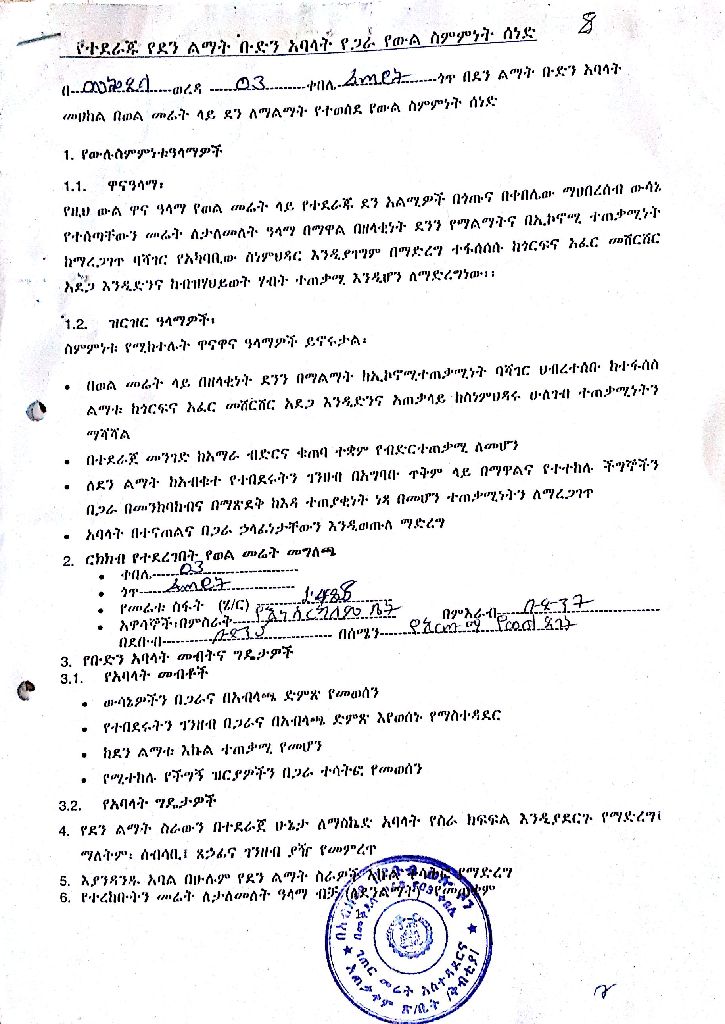 8
የተደራጁ የደን ልማት ቡድን አባላት የጋራ የውል ስምምነት ሰነድ
በ ወረዳ 03 ቀበሌ ጎጥ በደን ልማት ቡድን አባላት
መሀከል በወል መሬት ላይ ደን ለማልማት የተወሰደ የውል ስምምነት ሰነድ
1. የውሉስምምነቱዓላማዎች
1.1. ዋናዓላማ፡
የዚህ ውል ዋና ዓላማ የወል መሬት ላይ የተደራጁ ደን አልሚዎች በጎጡና በቀበሌው ማህበረሰብ ውሳኔ
የተሰጣቸውን መሬት ለታለመለት ዓላማ በማዋል በዘላቂነት ደንን የማልማትና በኢኮኖሚ ተጠቃሚነት
ከማረጋገጥ ባሻገር የአካባቢው ስነምህዳር እንዲያገግም በማድረግ ተፋሰሰሱ ከጎርፍና አፈር መሸርሸር
አደጋ እንዲድንና ከብዝሃህይወት ሃብት ተጠቃሚ እንዲሆን ለማድረግነው፡፡
1.2. ዝርዝር ዓላማዎች፡
ስምምነቱ የሚከተሉት ዋናዋና ዓላማዎች ይኖሩታል፡
• በወል መሬት ላይ በዘላቂነት ደንን በማልማት ከኢኮኖሚተጠቃሚነት ባሻገር ህብረተሰቡ ከተፋሰስ
ልማቱ ከጎርፍና አፈር መሸርሸር አደጋ እንዲድንና አጠቃላይ ከስነምህዳሩ ሁለገብ ተጠቃሚነትን
ማሻሻል
• በተደራጀ መንገድ ከአማራ ብድርና ቁጠባ ተቋም የብድርተጠቃሚ ለመሆን
• ለደን ልማት ከአብቁተ የተበደሩትን ገንዘብ በአግባቡ ጥቅም ላይ በማዋልና የተተከሉ ችግኞችን
በጋራ በመንከባከብና በማጽደቅ ከእዳ ተጠያቂነት ነጻ በመሆን ተጠቃሚነትን ለማረጋገጥ
• አባላት በተናጠልና በጋራ ኃላፊነታቸውን እንዲወጡለ ማድረግ
2. ርክክብ የተደረገበት የወል መሬት መግለጫ
• ቀበሌ 03
• ጎጥ
• የመሬቱ ስፋት (ሄ/ር)
• አዋሳኞች፡በምስራት በምእራብ
በደቡብ በሰሜን
3. የቡድን አባላት መብትና ግዴታዎች
3.1. የአባላት መብቶች
• ውሳኔዎችን በጋራና በአብላጫ ድምጽ የመወሰን
• የተበደሩትን ገንዘብ በጋራና በአብላጫ ድምጽ እየወሰኑ የማስተዳደር
• ከደን ልማቱ እኩል ተጠቃሚ የመሆን
• የሚተከሉ የችግኝ ዝርያዎችን በጋራ ተሳትፎ የመወሰን
3.2. የአባላት ግዴታዎች
4. የደን ልማት ስራውን በተደራጀ ሁኔታ ለማስኬድ አባላት የስራ ክፍፍል እንዲያደርጉ የማድረግ፤
ማለትም፡ ሰብሳቢ፤ ጸኃፊና ገንዘብ ያዥ የመምረጥ
5. እያንዳንዱ አባል በሁሉም የደን ልማት ስራዎች እኩል ተሳትፎ የማድረግ
6. የተረከቡትን መሬት ለታለመለት ዓላማ ብቻ (ለደንልማት) የመጠቀም
ገጠር መሬት አስተዳደርና
አጠቃቀም ጽ/ቤት